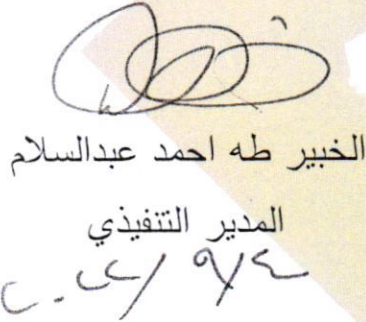 الخبير طه احمد عبدالسلام
المدير التنفيذي